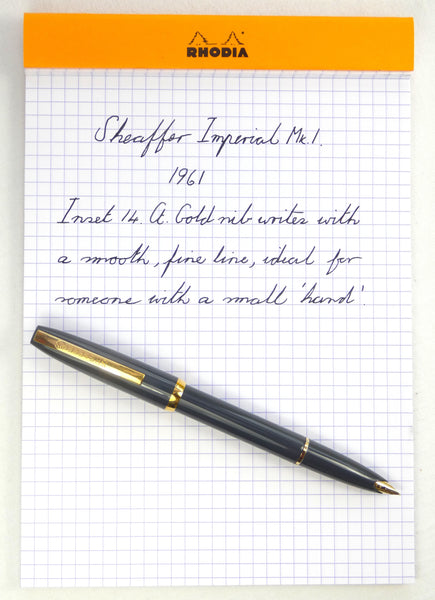 RHODIA
Sheaffer Imperial Mk.1.
1961
Inset 14. ct. Gold nib writes with
a smooth, fine line, ideal for
someone with a small 'hand'.